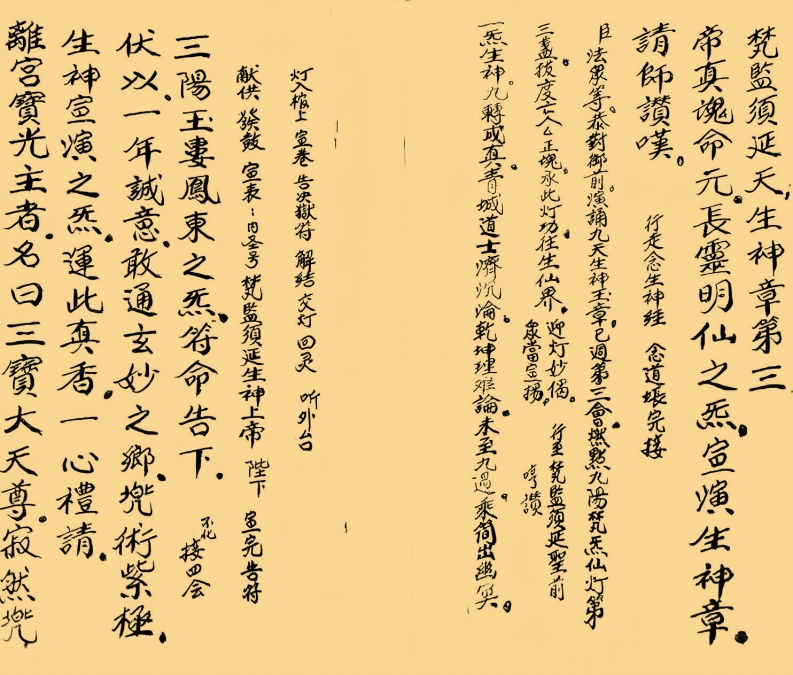 梵監須延天生神章第三
帝真魂命元。長靈明仙之炁。宣演生神章。
請師讃嘆。 行走念生神経 念道帳完接
臣法衆等。恭對御前。演誦九天生神玉章。已週第三會。燃點九陽梵炁仙灯第
三盞。拔度亡人厶正魂。承此灯功往生仙界。 迎灯妙偈。衆當宣揚。 行至梵監須延聖前 嗱讃
一炁生神。九轉成真。青城道士濟沉淪。乾坤理难論。未至九過。乘簡出幽冥。
灯入棺上 宣卷 告決獄符 解結 交灯 回灵 听外台
献供 發鼓 宣表:内圣号 梵監須延生神上帝 陛下 宣完告符
三陽玉婁鳳東之炁。符命告下。 不化 接四会
伏以。一年誠意。敢通玄妙之鄉。兠術紫極。
生神宣演之炁。運此真香。一心禮請。
離宮寶光主者。名曰三寶大天尊。寂然兠